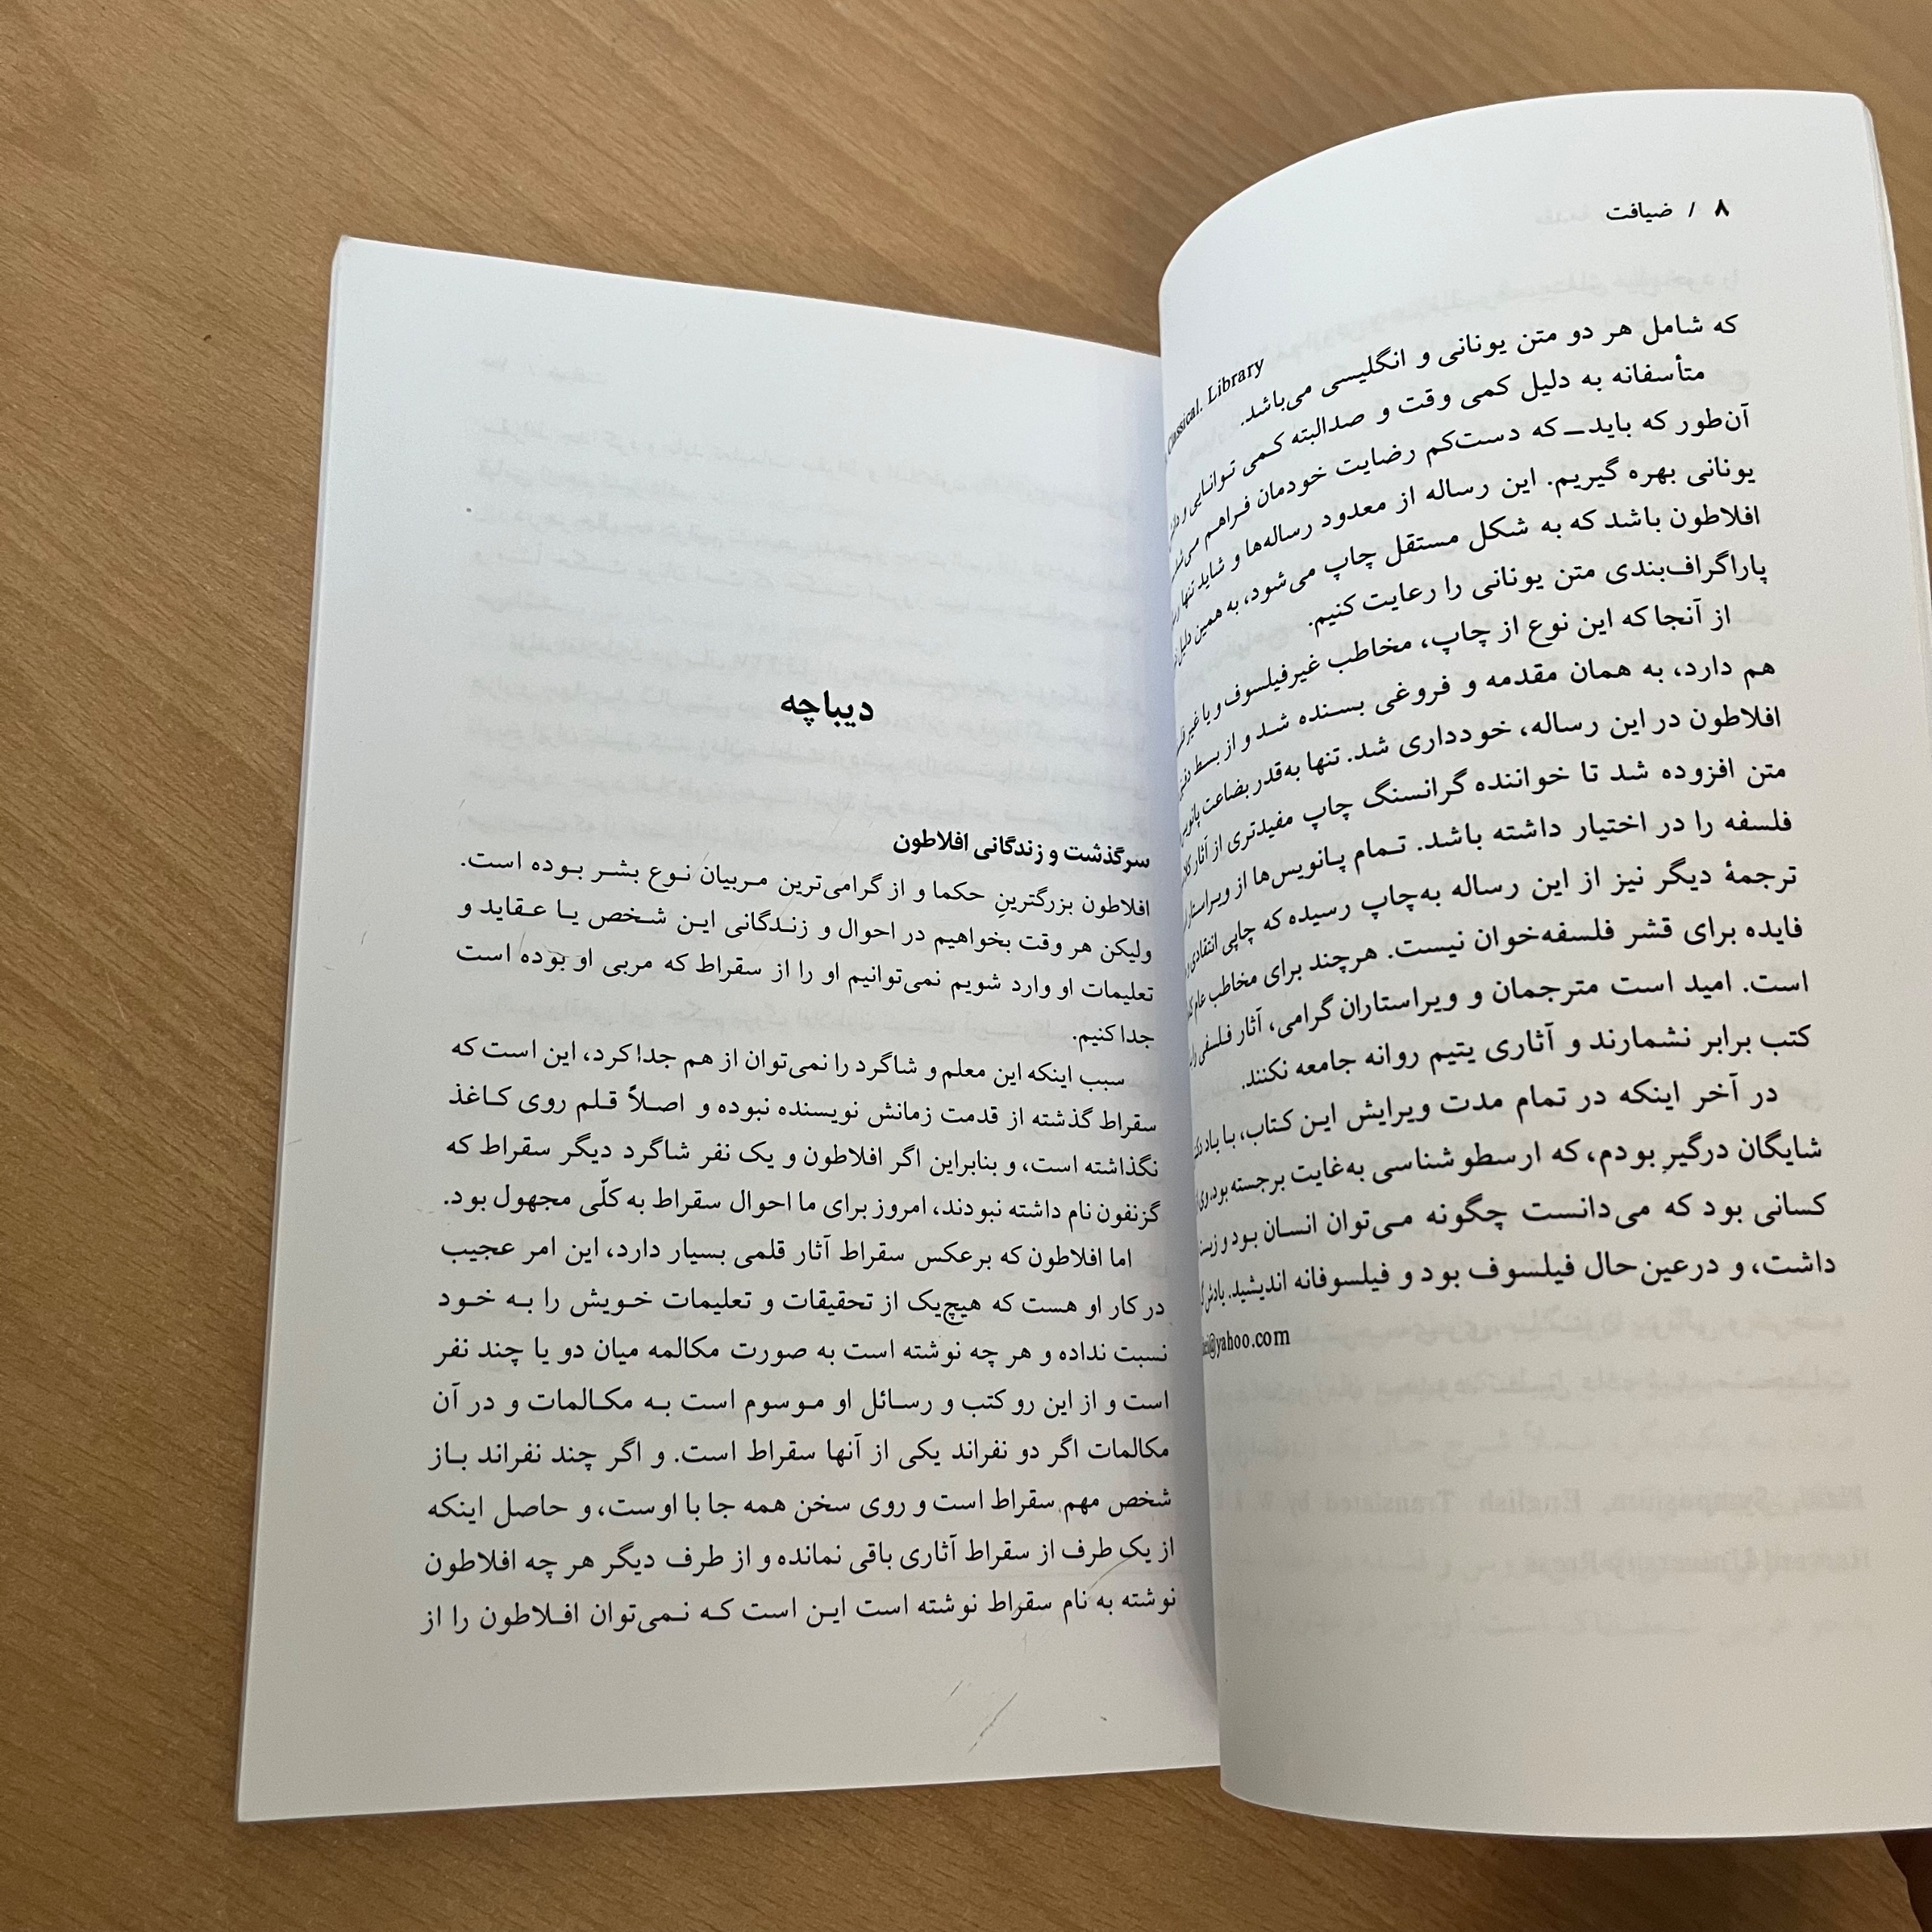 ۸ / ضیافت
Classical. Library
که شامل هر دو متن یونانی و انگلیسی می‌باشد.
متأسفانه به دلیل کمی وقت و صدالبته کمی توانایی و
آن‌طور که باید ــ که دست‌کم رضایت خودمان فراهم
یونانی بهره گیریم. این رساله از معدود رساله‌ها و شاید تنها
افلاطون باشد که به شکل مستقل چاپ می‌شود، به همین دلیل
پاراگراف‌بندی متن یونانی را رعایت کنیم.
از آنجا که این نوع از چاپ، مخاطب غیرفیلسوف و یا
هم دارد، به همان مقدمه و فروغی بسنده شد و از بسط
افلاطون در این رساله، خودداری شد. تنها به‌قدر بضاعت
متن افزوده شد تا خواننده گرانسنگ چاپ مفیدتری از آثار
فلسفه را در اختیار داشته باشد. تمام پانویس‌ها از ویراستار
ترجمهٔ دیگر نیز از این رساله به‌چاپ رسیده که چاپی انتقادی
فایده برای قشر فلسفه‌خوان نیست. هرچند برای مخاطب عام
است. امید است مترجمان و ویراستاران گرامی، آثار فلسفی
کتب برابر نشمارند و آثاری یتیم روانه جامعه نکنند.
در آخر اینکه در تمام مدت ویرایش این کتاب، با یاد
شایگان درگیرِ بودم، که ارسطو شناسی به‌غایت برجسته بود،
کسانی بود که می‌دانست چگونه می‌توان انسان بود و
داشت، و درعین‌حال فیلسوف بود و فیلسوفانه اندیشید.
@yahoo.com
دیباچه
سرگذشت و زندگانی افلاطون
افلاطون بزرگترینِ حکما و از گرامی‌ترین مربیان نوع بشر بوده است.
ولیکن هر وقت بخواهیم در احوال و زندگانی این شخص یا عقاید و
تعلیمات او وارد شویم نمی‌توانیم او را از سقراط که مربی او بوده است
جدا کنیم.
سبب اینکه این معلم و شاگرد را نمی‌توان از هم جدا کرد، این است که
سقراط گذشته از قدمت زمانش نویسنده نبوده و اصلاً قلم روی کاغذ
نگذاشته است، و بنابراین اگر افلاطون و یک نفر شاگرد دیگر سقراط که
گزنفون نام داشته نبودند، امروز برای ما احوال سقراط به کلّی مجهول بود.
اما افلاطون که برعکس سقراط آثار قلمی بسیار دارد، این امر عجیب
در کار او هست که هیچ‌یک از تحقیقات و تعلیمات خویش را به خود
نسبت نداده و هر چه نوشته است به صورت مکالمه میان دو یا چند نفر
است و از این رو کتب و رسائل او موسوم است به مکالمات و در آن
مکالمات اگر دو نفراند یکی از آنها سقراط است. و اگر چند نفراند باز
شخص مهم سقراط است و روی سخن همه جا با اوست، و حاصل اینکه
از یک طرف از سقراط آثاری باقی نمانده و از طرف دیگر هر چه افلاطون
نوشته به نام سقراط نوشته است این است که نمی‌توان افلاطون را از